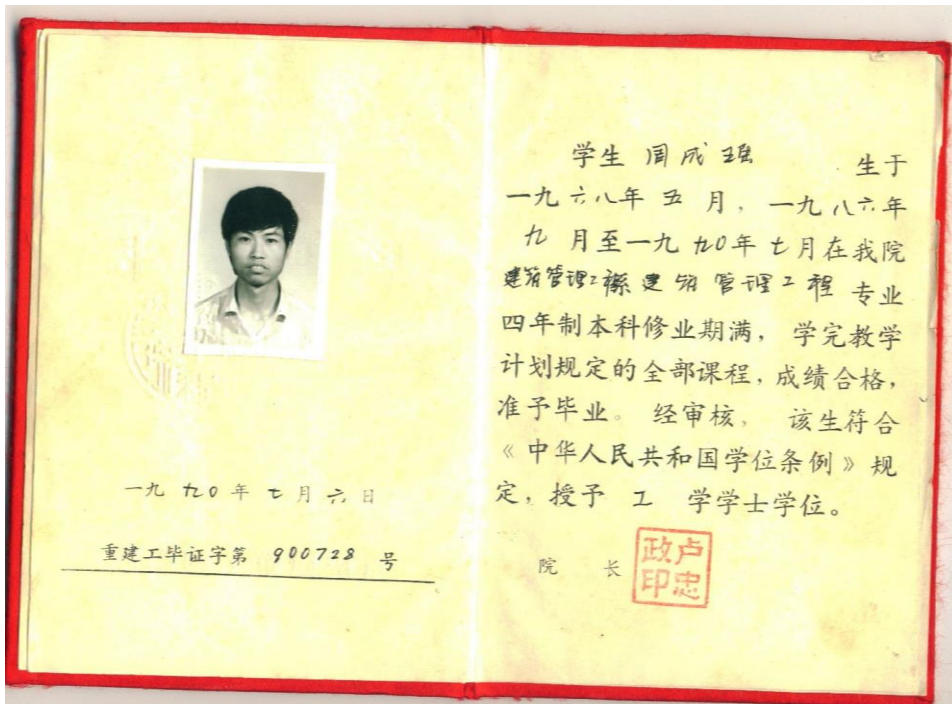 一九九0年七月六日
重建工毕证字第 900728 号
学生 生于
一九六八年五月，一九八六年
九月至一九九0年七月在我院
建筑管理工程系建筑管理工程专业
四年制本科修业期满，学完教学
计划规定的全部课程，成绩合格，
准予毕业。经审核，该生符合
《中华人民共和国学位条例》规
定，授予 工 学学士学位。
院 长
卢忠政印